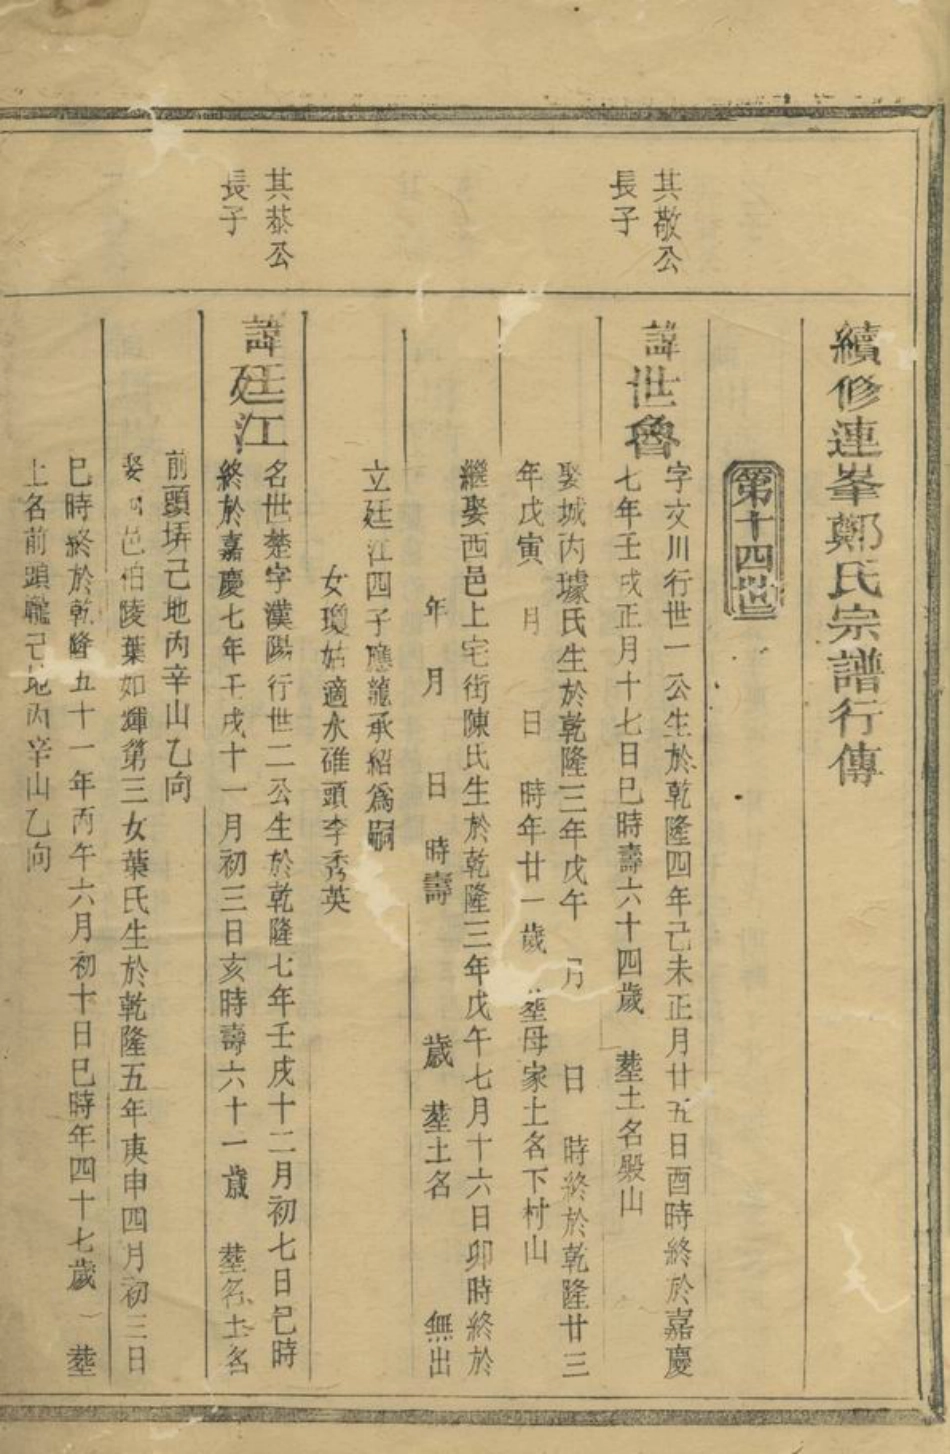 續修連峯鄭氏宗譜行傳
第十四世
其敬公
長子
諱世魯
字文川行世一公生於乾隆四年己未正月廿五日酉時終於嘉慶
七年壬戌正月十七日巳時壽六十四歲 塟土名殿山
娶城內璩氏生於乾隆三年戊午 月 日 時終於乾隆廿三
年戊寅 月 日 時年廿一歲 塟母家土名下村山
繼娶西邑上宅街陳氏生於乾隆三年戊午七月十六日卯時終於
年 月 日 時壽 歲 塟土名 無出
立廷江四子應龍承紹爲嗣
女瓊姑適水碓頭李秀英
其㳟公
長子
諱廷江
名世楚字漢陽行世二公生於乾隆七年壬戌十二月初七日巳時
終於嘉慶七年壬戌十一月初三日亥時壽六十一歲 塟名土名
前頭塝己地丙辛山乙向
娶 邑柏陵葉如輝第三女葉氏生於乾隆五年庚申四月初三日
巳時終於乾隆五十一年丙午六月初十日巳時年四十七歲 塟
上名前頭 己地丙辛山乙向